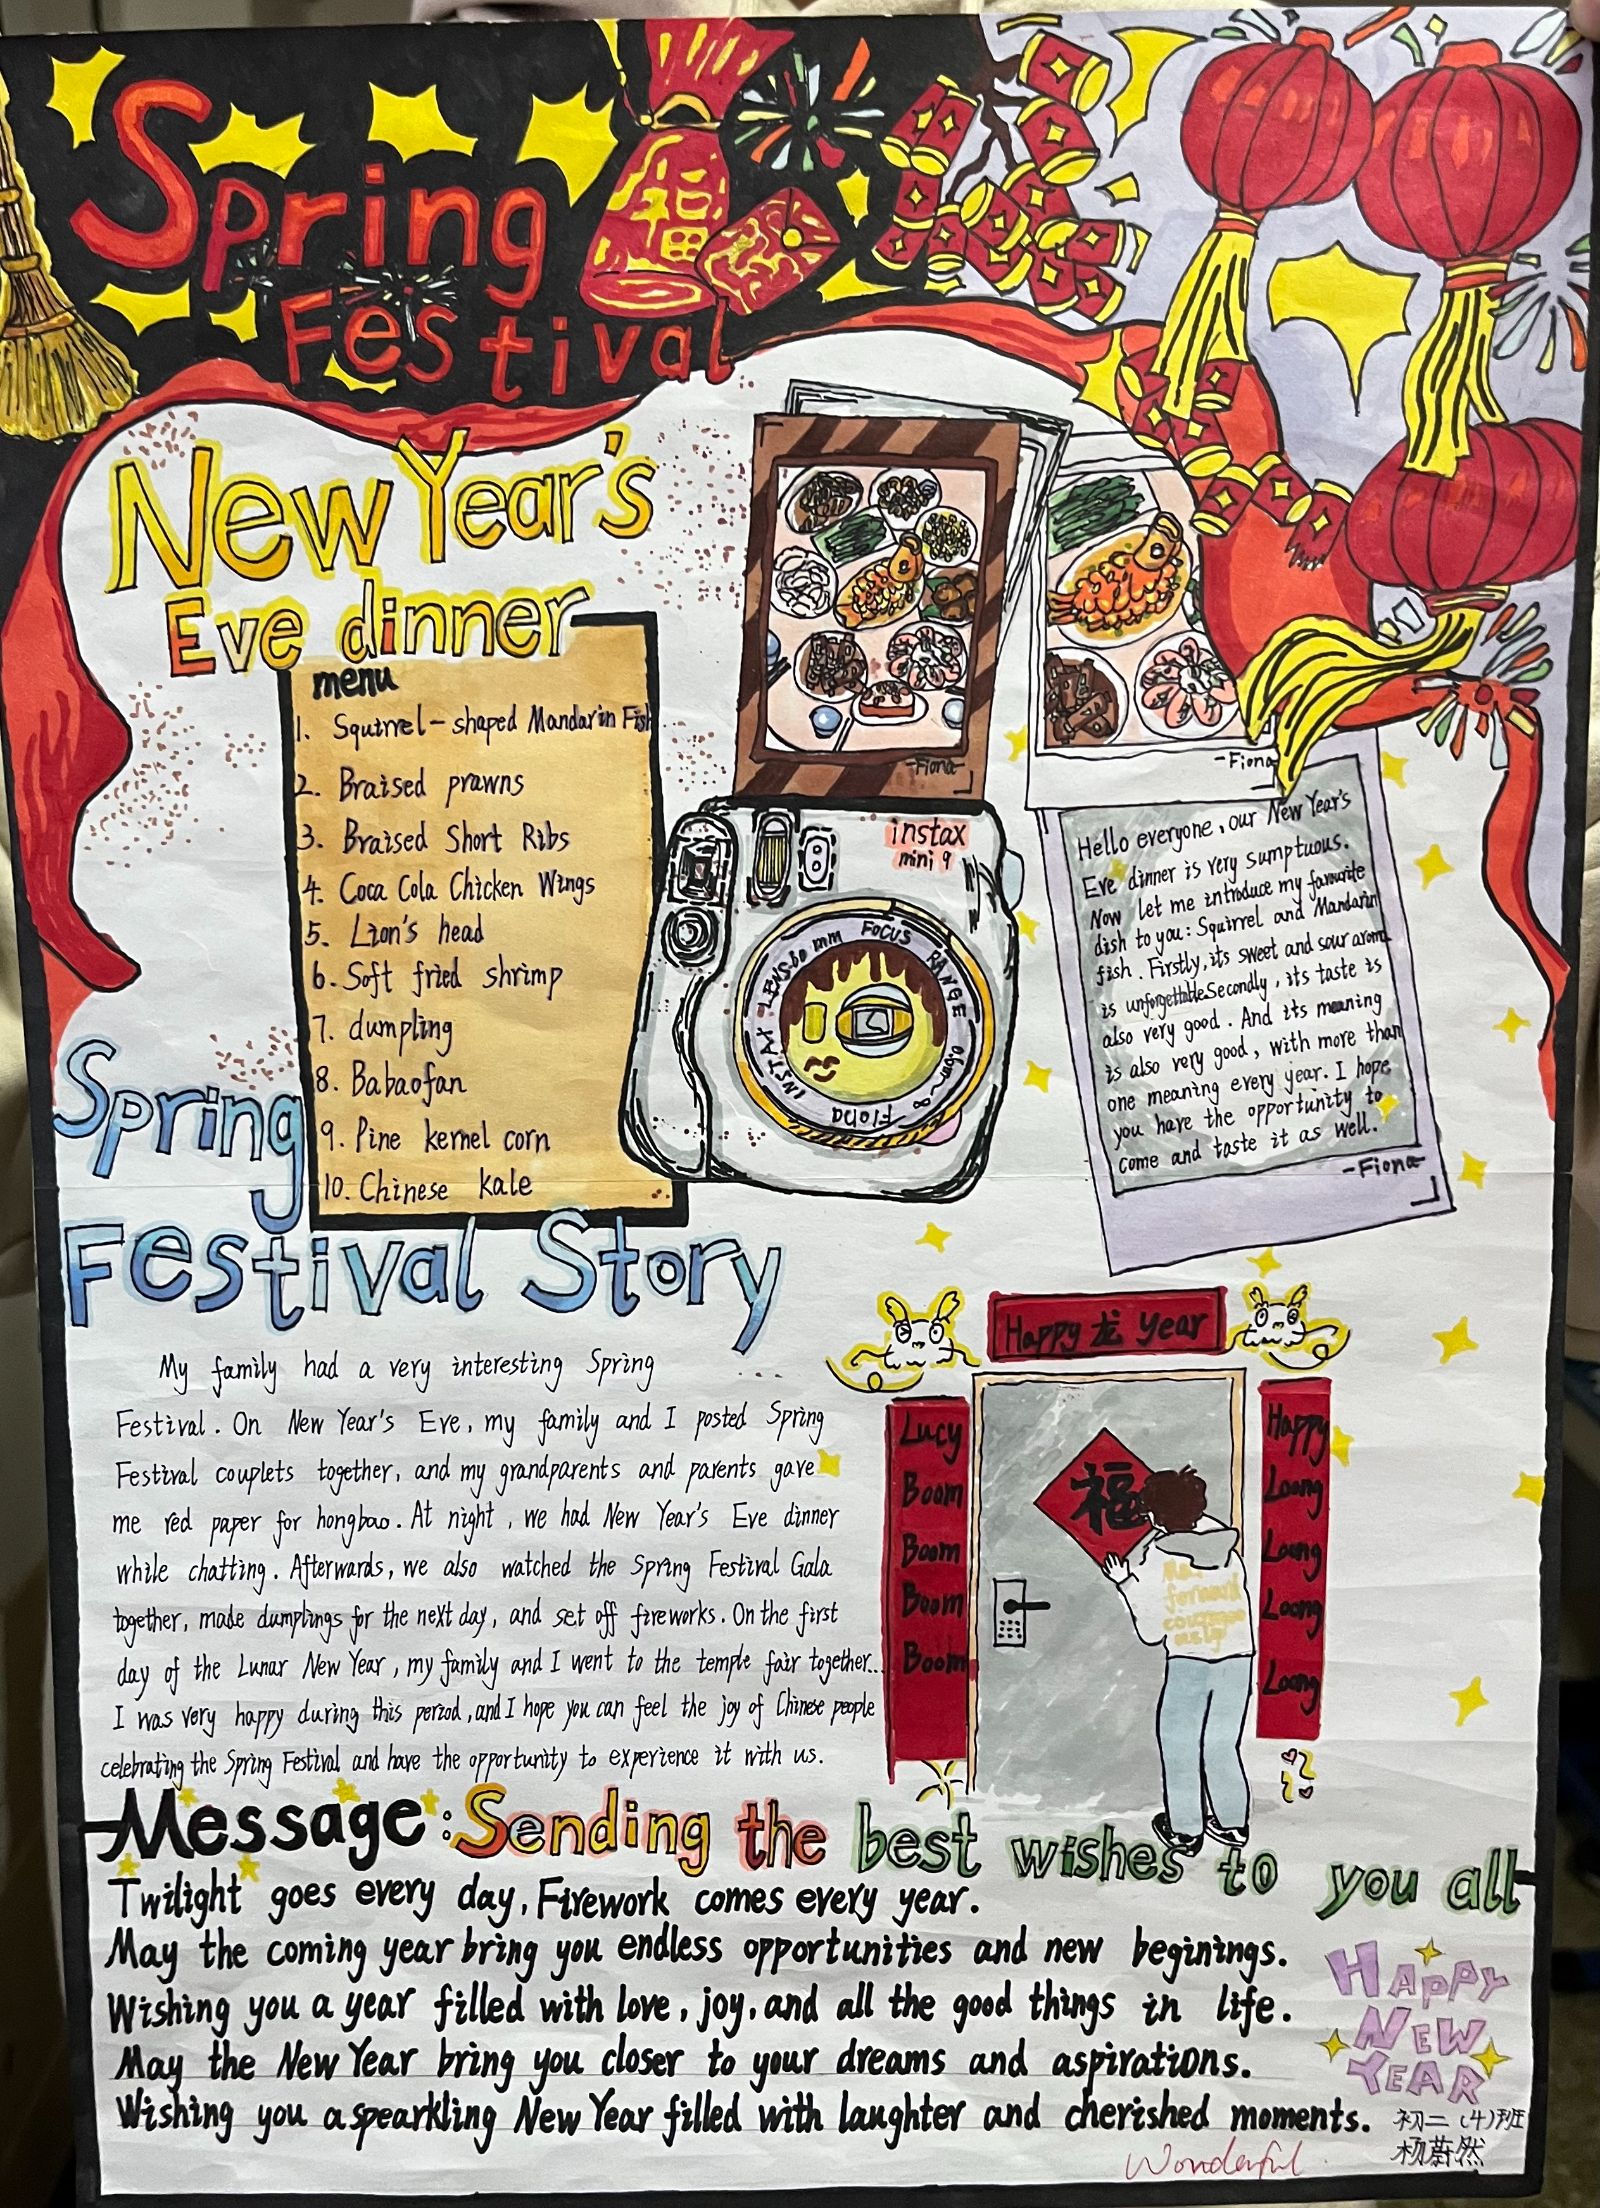 Spring
Festival
福
New Year's
Eve dinner
menu
1. Squirrel-shaped Mandarin Fish
2. Braised prawns
3. Braised Short Ribs
4. Coca Cola Chicken Wings
5. Lion's head
6. Soft fried shrimp
7. dumpling
8. Babaofan
9. Pine kernel corn
10. Chinese kale
-Fiona-
-Fiona
instax
mini 9
INSTAX LENS 60 mm FOCUS RANGE 0.6m~∞
Fiona
Hello everyone, our New Year's
Eve dinner is very sumptuous.
Now let me introduce my favourite
dish to you: Squirrel and Mandarin
fish. Firstly, its sweet and sour aroma
is unforgettable. Secondly, its taste is
also very good. And its meaning
is also very good, with more than
one meaning every year. I hope
you have the opportunity to
come and taste it as well.
-Fiona-
Spring
Festival Story
My family had a very interesting Spring
Festival. On New Year's Eve, my family and I posted Spring
Festival couplets together, and my grandparents and parents gave
me red paper for hongbao. At night, we had New Year's Eve dinner
while chatting. Afterwards, we also watched the Spring Festival Gala
together, made dumplings for the next day, and set off fireworks. On the first
day of the Lunar New Year, my family and I went to the temple fair together...
I was very happy during this period, and I hope you can feel the joy of Chinese people
celebrating the Spring Festival and have the opportunity to experience it with us.
Happy 龙 Year
Lucy
Boom
Boom
Boom
Boom
福
forward
Happy
Loong
Loong
Loong
Loong
Message: Sending the best wishes to you all
Twilight goes every day, Firework comes every year.
May the coming year bring you endless opportunities and new beginings.
Wishing you a year filled with love, joy, and all the good things in life.
May the New Year bring you closer to your dreams and aspirations.
Wishing you a spearkling New Year filled with laughter and cherished moments.
Happy
New
Year
初二(4)班
杨蔚然
Wonderful